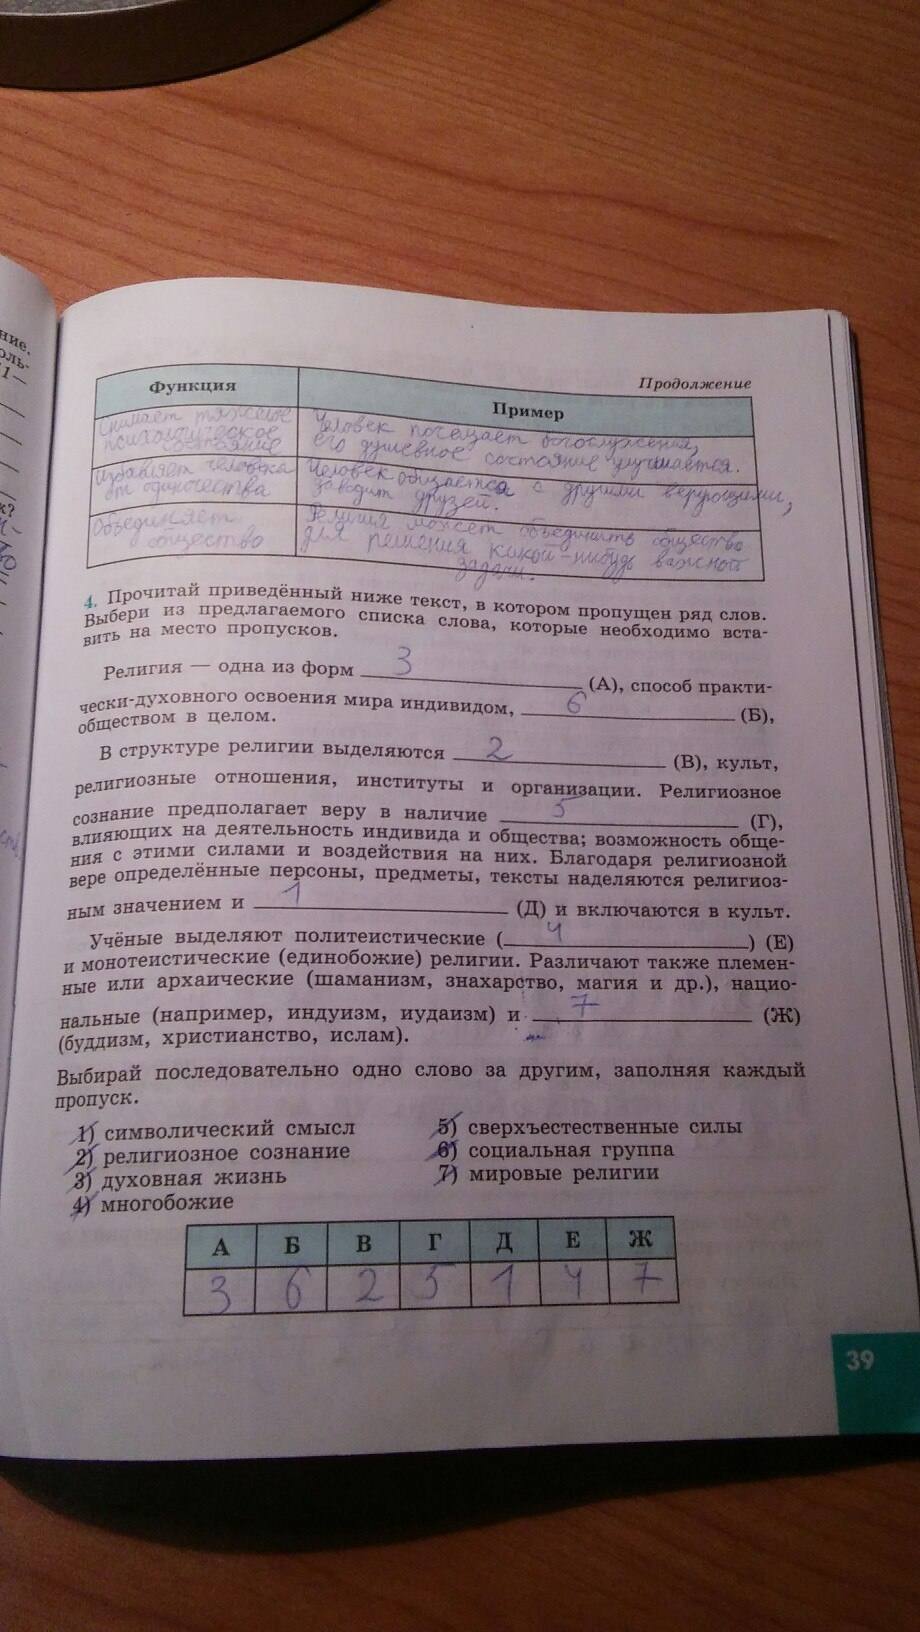 ние.
оль-
1—
к?
Продолжение
Функция
Пример
Снимает тяжёлое
психологическое
состояние
Человек посещает богослужения,
его душевное состояние улучшается.
Избавляет человека
от одиночества
Человек общается с другими верующими,
заводит друзей.
Объединяет
общество
Религия может объединять общество
для решения какой-нибудь важной
задачи.
4. Прочитай приведённый ниже текст, в котором пропущен ряд слов.
Выбери из предлагаемого списка слова, которые необходимо вста-
вить на место пропусков.
Религия — одна из форм 3 (А), способ практи-
чески-духовного освоения мира индивидом, 6 (Б),
обществом в целом.
В структуре религии выделяются 2 (В), культ,
религиозные отношения, институты и организации. Религиозное
сознание предполагает веру в наличие 5 (Г),
влияющих на деятельность индивида и общества; возможность обще-
ния с этими силами и воздействия на них. Благодаря религиозной
вере определённые персоны, предметы, тексты наделяются религиоз-
ным значением и 1 (Д) и включаются в культ.
Учёные выделяют политеистические (4) (Е)
и монотеистические (единобожие) религии. Различают также племен-
ные или архаические (шаманизм, знахарство, магия и др.), нацио-
нальные (например, индуизм, иудаизм) и 7 (Ж)
(буддизм, христианство, ислам).
Выбирай последовательно одно слово за другим, заполняя каждый
пропуск.
1) символический смысл
2) религиозное сознание
3) духовная жизнь
4) многобожие
5) сверхъестественные силы
6) социальная группа
7) мировые религии
А Б В Г Д Е Ж
3 6 2 5 1 4 7
39